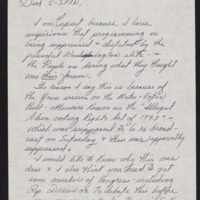 Dear C-SPAN,
I am upset because I have
suspicions that programming is
being suppressed & dictated by the
powerful Washington elite - &
the People are losing what they thought
was their forum.
The reason I say this is because of
the Brown smith on the Motor-Voter
Bill - otherwise known as the "Illegal
Alien Voting Rights Act of 1993" -
which was supposed to be to broad-
cast on Saturday & then was apparently
suppressed.
I would like to know why this was
done & I also think you need to get
some members of Congress - including
Rep to debate this before